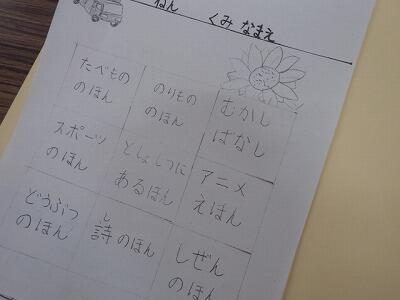 ねん　くみ なまえ
たべもの
のほん
のりもの
のほん
むかし
ばなし
スポーツ
のほん
としょしつに
あるほん
アニメ
えほん
どうぶつ
のほん
し
詩のほん
しぜん
のほん